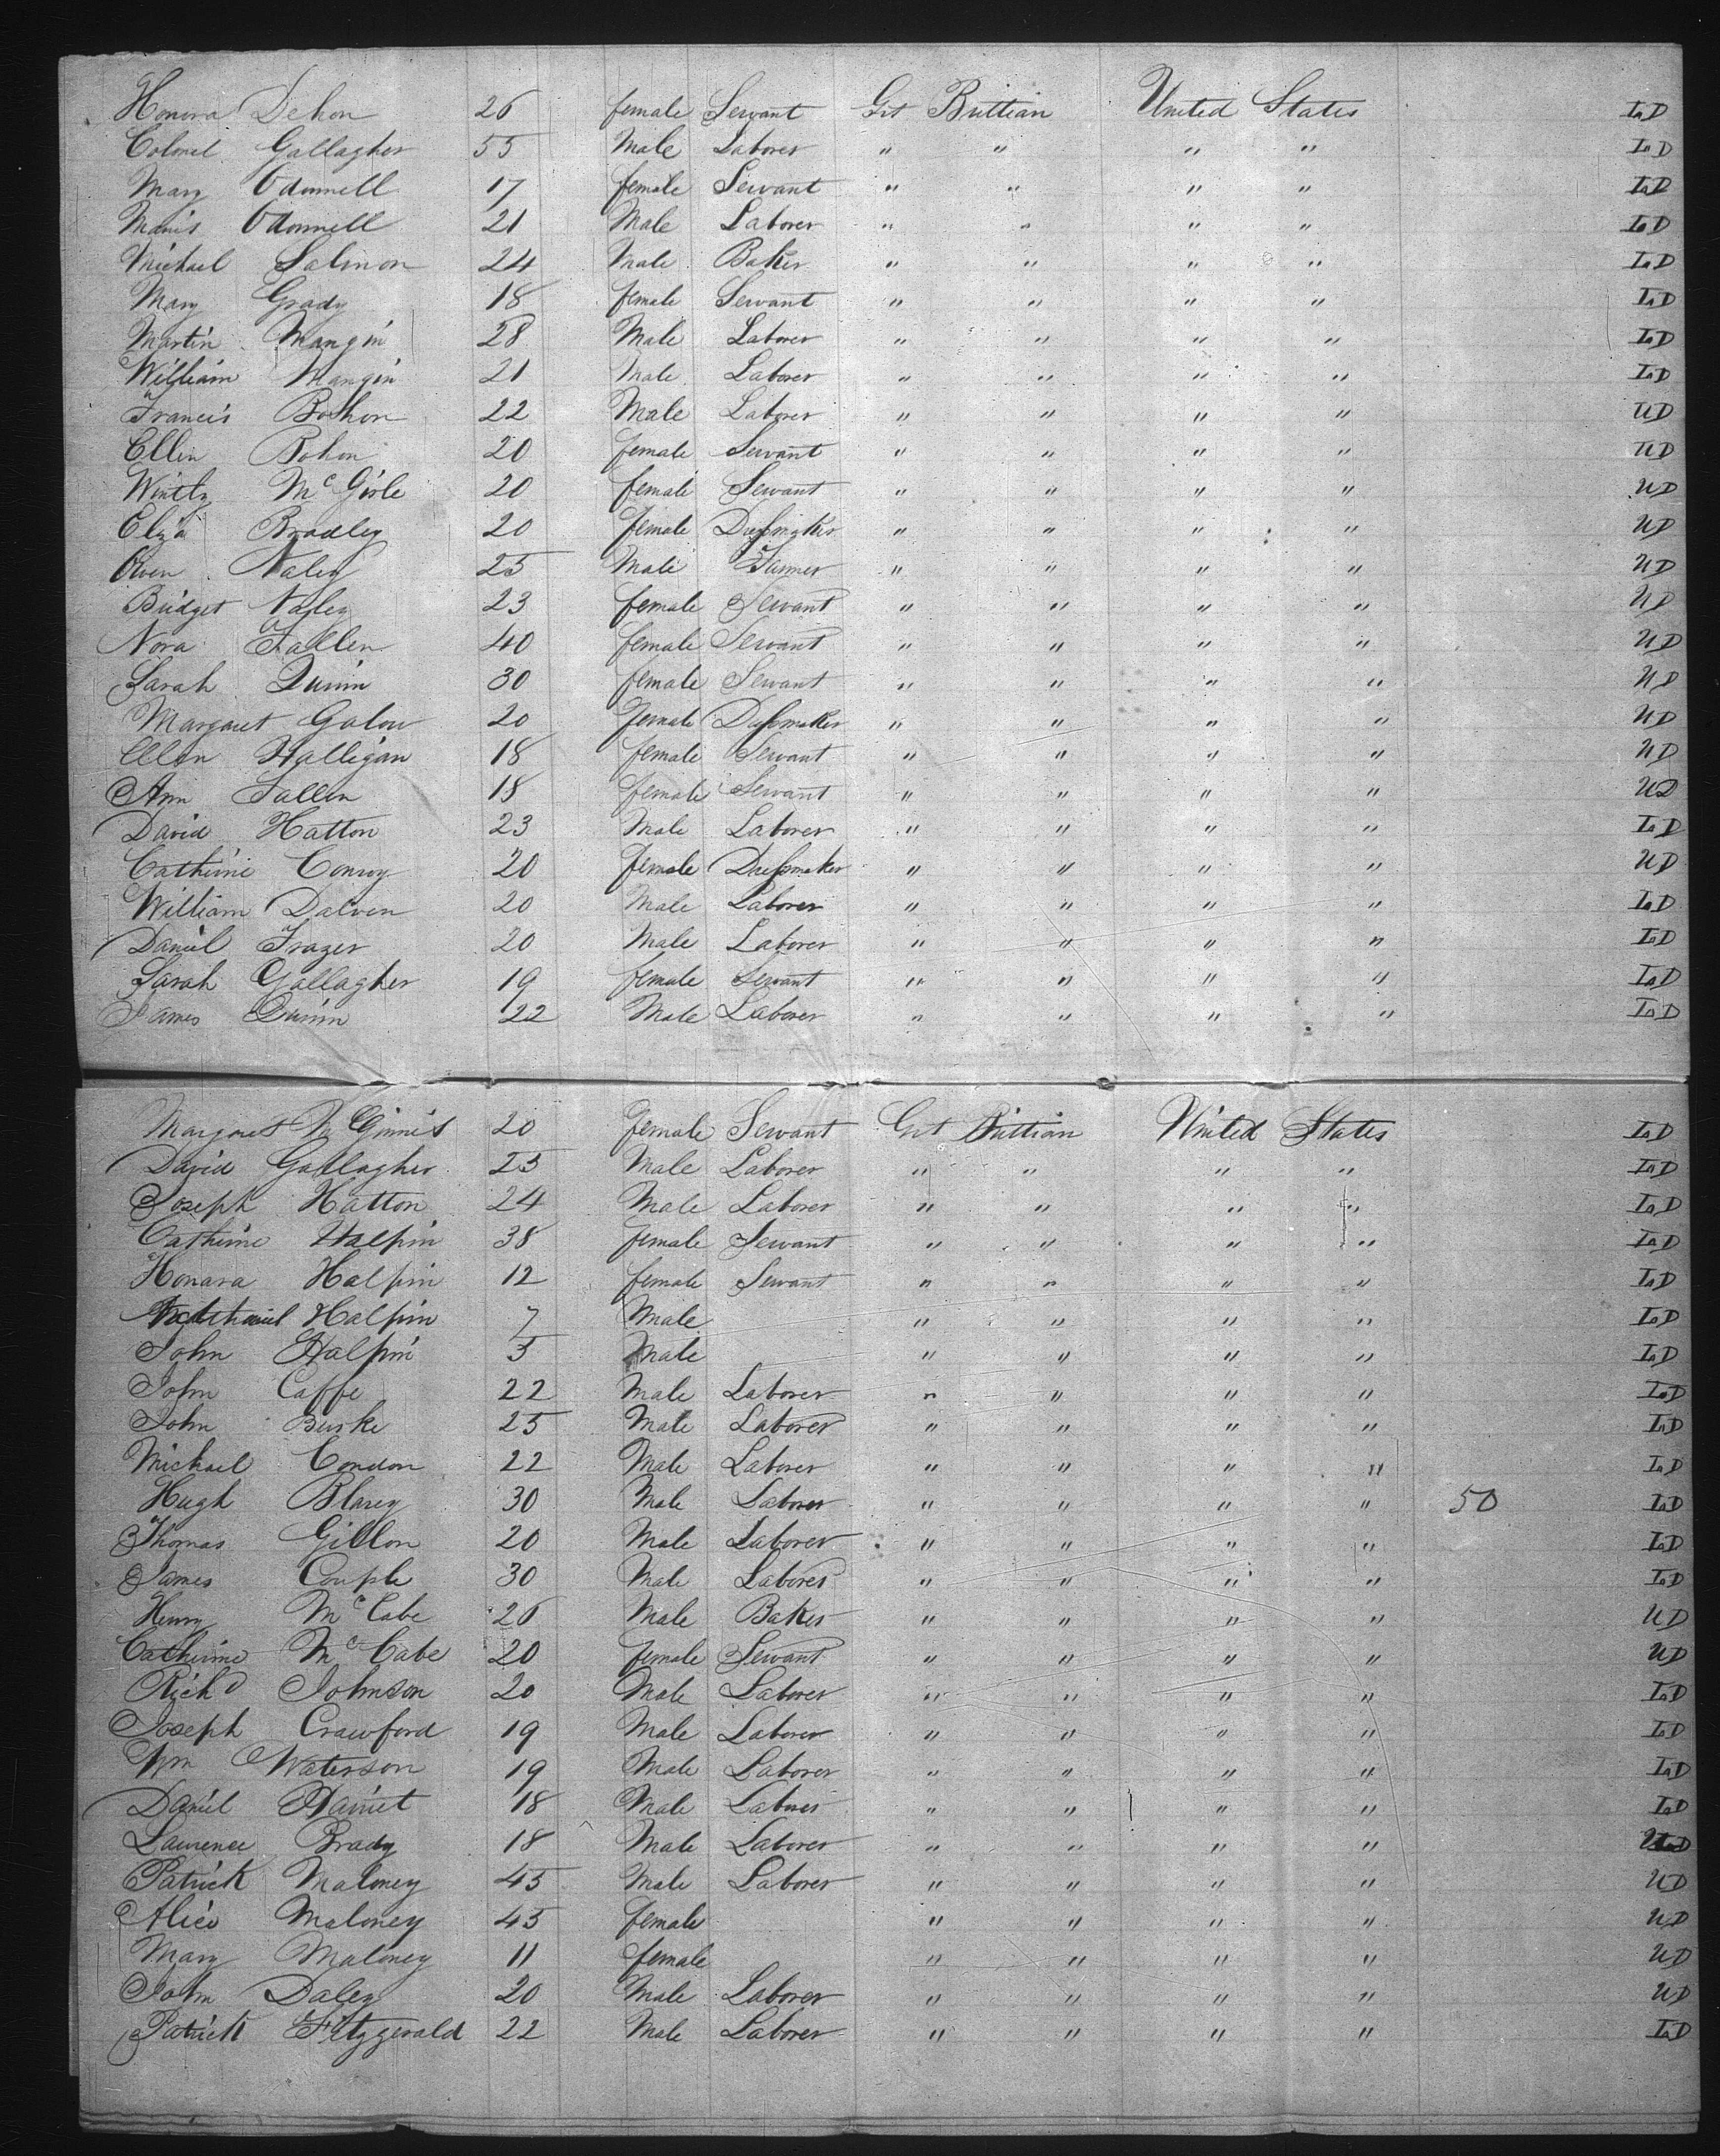 Honora Dehon 26 female Servant Grt Brittian United States LD
Colonel Gallagher 55 Male Laborer " " " " LD
Mary Odonnell 17 female Servant " " " " LD
Manis Odonnell 21 Male Laborer " " " " LD
Michael Salmon 24 Male Baker " " " " LD
Mary Grady 18 female Servant " " " " LD
Martin Mangin 28 Male Laborer " " " " LD
William Mangin 21 Male Laborer " " " " LD
Francis Bohon 22 Male Laborer " " " " UD
Ellen Bohon 20 female Servant " " " " UD
Mc 20 female Servant " " " " UD
Eliza Bradley 20 female Dressmaker " " " " UD
Owen Naley 25 Male Farmer " " " " UD
Bridget Naley 23 female Servant " " " " UD
Nora Fallen 40 female Servant " " " " UD
Sarah Quinn 30 female Servant " " " " UD
Margaret Galow 20 female Dressmaker " " " " UD
Ellen Halligan 18 female Servant " " " " UD
Ann Fallen 18 female Servant " " " " UD
David Hatton 23 Male Laborer " " " " LD
Catherine Conroy 20 female Dressmaker " " " " UD
William Dalven 20 Male Laborer " " " " LD
Daniel Frazer 20 Male Laborer " " " " LD
Sarah Gallagher 19 female Servant " " " " LD
James Quinn 22 Male Laborer " " " " LD
Margaret McGinnis 20 female Servant Grt Brittian United States LD
David Gallagher 25 Male Laborer " " " " LD
Joseph Hatton 24 Male Laborer " " " " LD
Catherine Halpin 38 female Servant " " " " LD
Honara Halpin 12 female Servant " " " " LD
Nathaniel Halpin 7 Male " " " " LD
John Halpin 5 Male " " " " LD
John Caffe 22 Male Laborer " " " " LD
John Burke 25 Male Laborer " " " " LD
Michael Condon 22 Male Laborer " " " " LD
Hugh Blarey 30 Male Laborer " " " " 50 LD
Thomas Gillon 20 Male Laborer " " " " LD
James Couple 30 Male Laborer " " " " LD
Henry McCabe 26 Male Baker " " " " UD
Catherine McCabe 20 female Servant " " " " UD
Richd Johnson 20 Male Laborer " " " " LD
Joseph Crawford 19 Male Laborer " " " " LD
Wm Waterson 19 Male Laborer " " " " LD
Daniel 18 Male Laborer " " " " LD
Lawrence Brady 18 Male Laborer " " " "
Patrick Maloney 45 Male Laborer " " " " UD
Alice Maloney 45 female " " " " UD
Mary Maloney 11 female " " " " UD
John Daley 20 Male Laborer " " " " UD
Patrick Fitzgerald 22 Male Laborer " " " " LD